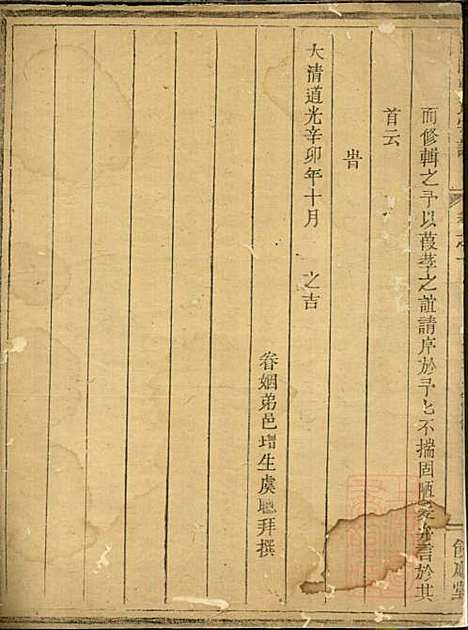 而修輯之予以葭莩之誼請序於予予不揣固陋爰弁言於其
首云
旹
大清道光辛卯年十月 之吉
眷姻弟邑增生虞聰拜撰